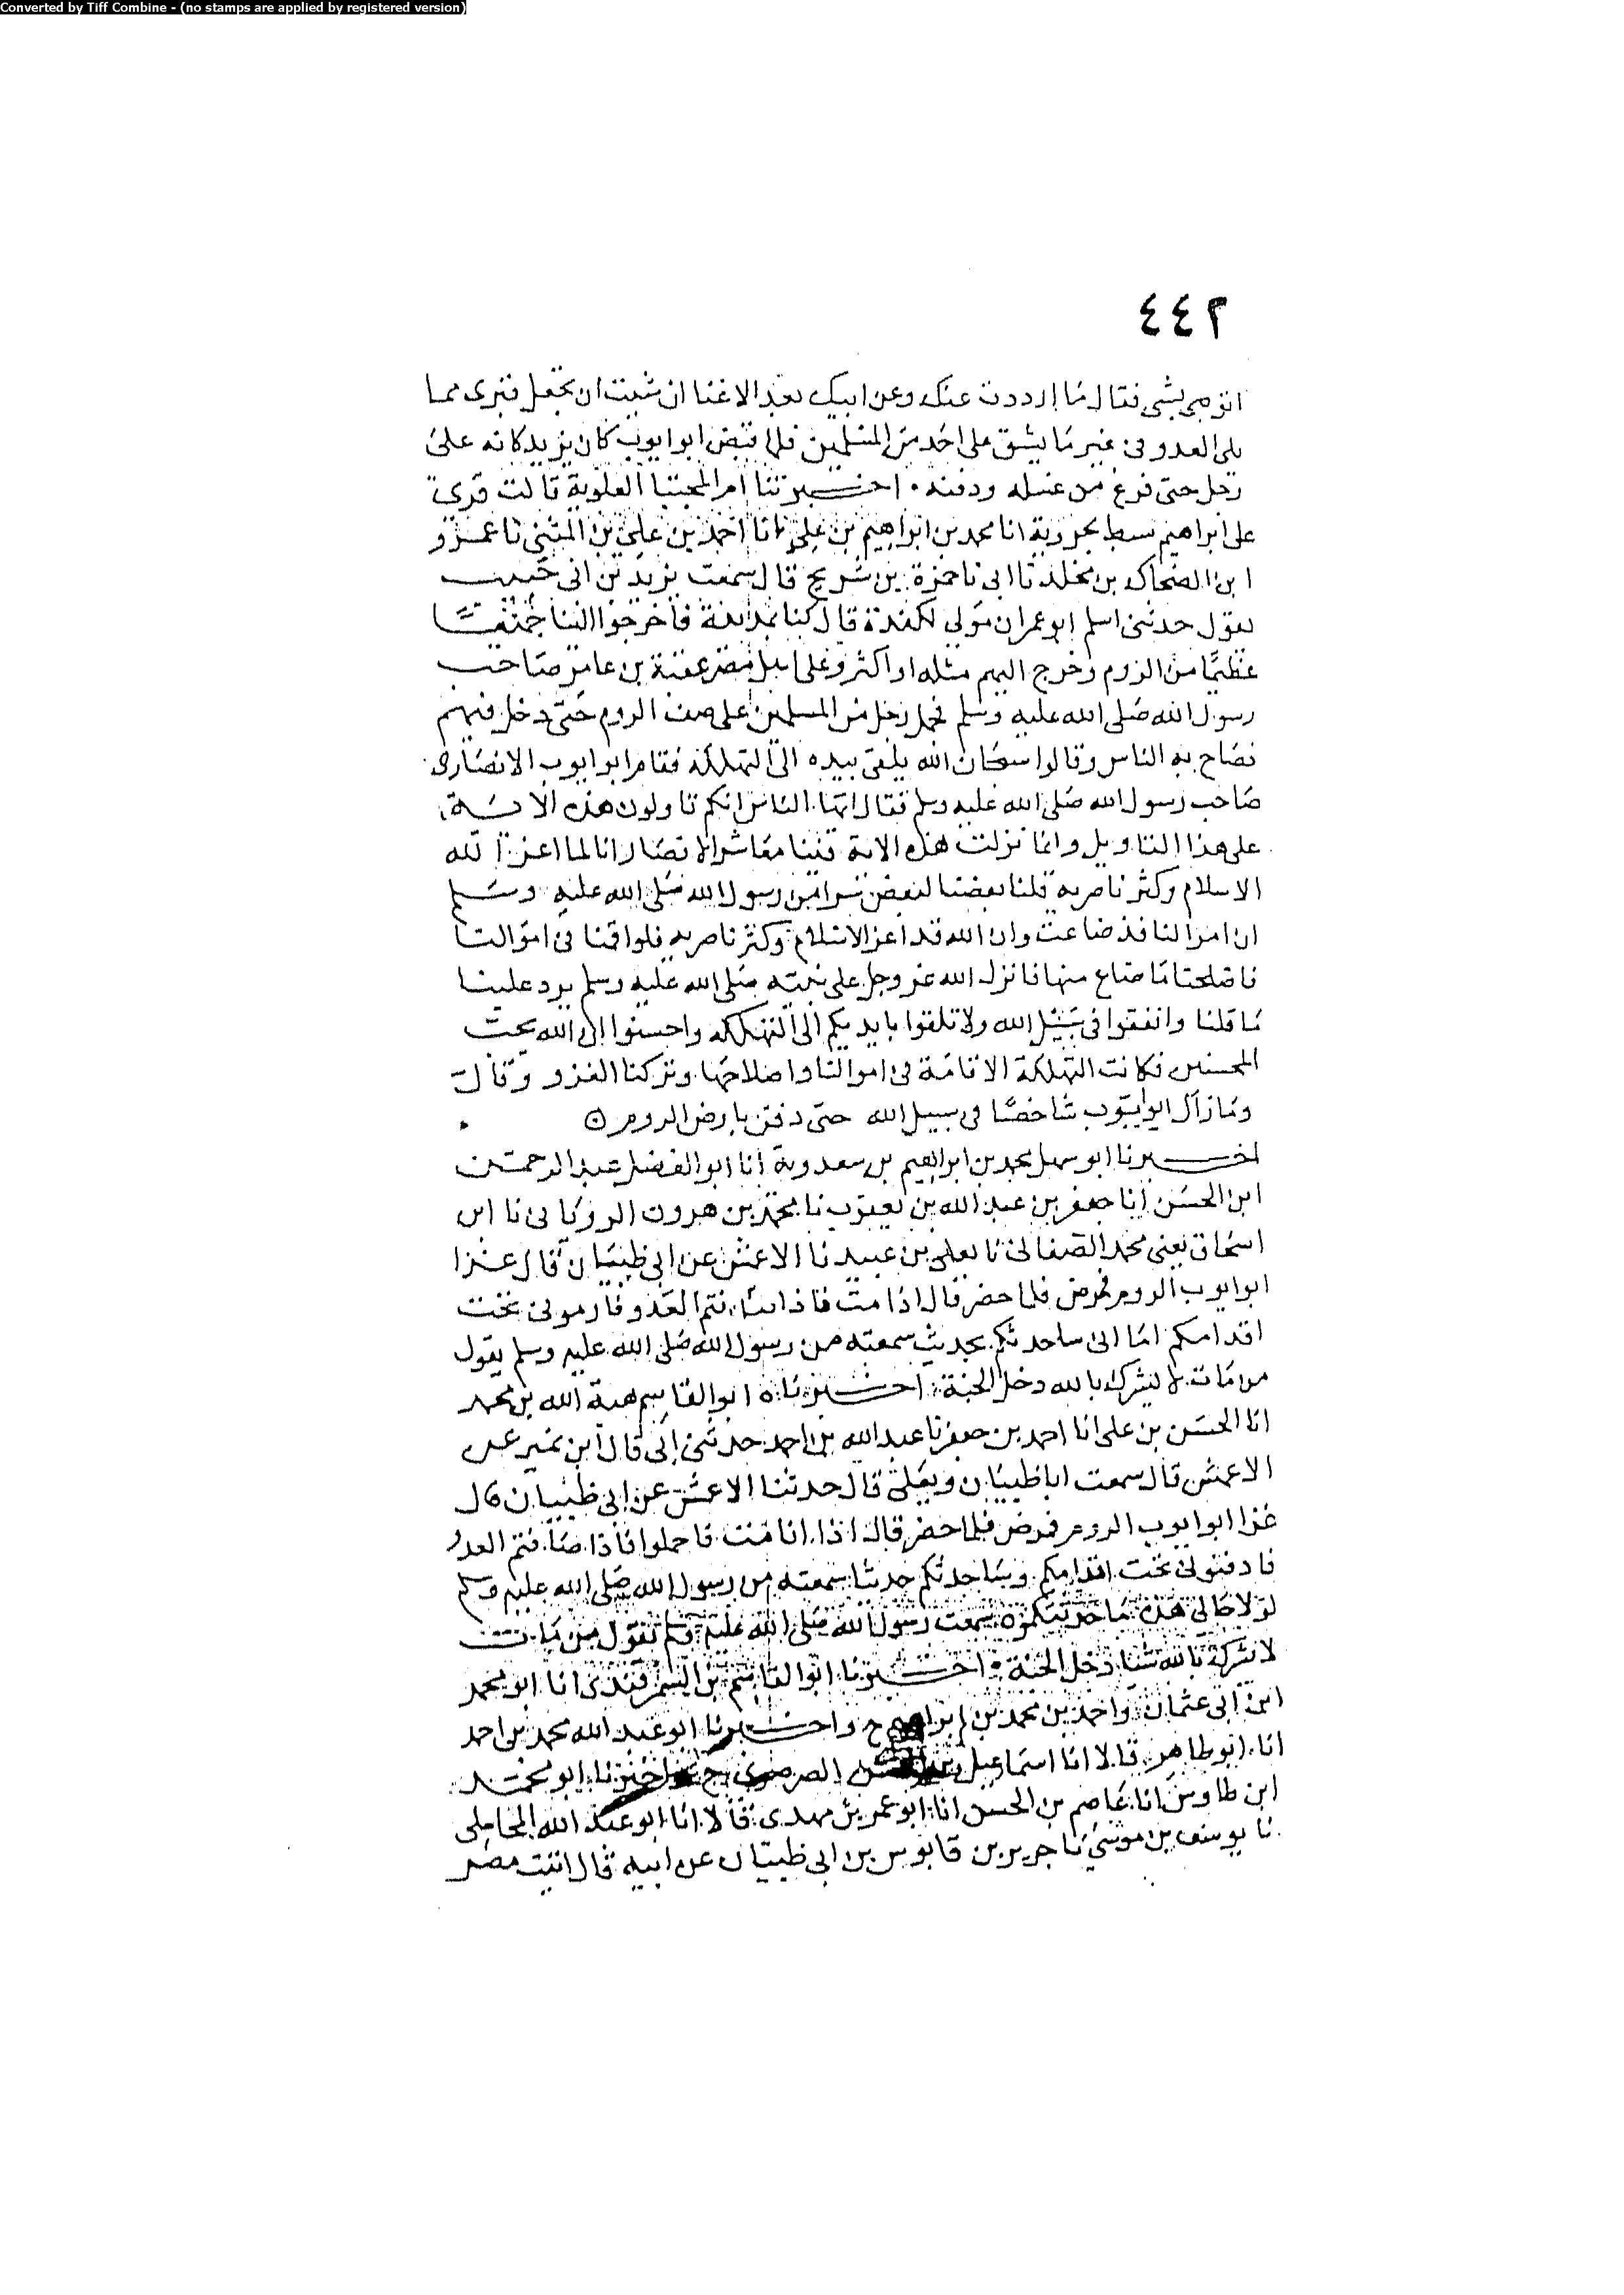 Converted by Tiff Combine - (no stamps are applied by registered version)
٤٤٢
اتوصي بشي فقال ما ازددت عنك وعن ابيك بعد الا غنا ان شيت ان تجعل قبري مما
يلي العدو في غير ما يشق على احد من المسلمين فلما قبض ابو ايوب كان يزيد كانه على
رجل حتى فرغ من غسله ودفنه . اخبرتنا ام المجتبا العلوية قالت قرئ
على ابراهيم سبط بحروية انا محمد بن ابراهيم بن علي انا احمد بن علي بن المثنى نا عمرو
ابن الضحاك بن مخلد نا ابي نا حمزة بن شريح قال سمعت يزيد بن ابي حبيب
يقول حدثني اسلم ابو عمران مولى لكندة قال كنا بمدينة فاخرجوا الينا صفا
عظيما من الروم وخرج اليهم مثله او اكثر وعلى اهل مصر عقبة بن عامر صاحب
رسول الله صلى الله عليه وسلم فحمل رجل من المسلمين على صف الروم حتى دخل فيهم
فصاح به الناس وقالوا سبحان الله يلقي بيده الى التهلكة فقام ابو ايوب الانصاري
صاحب رسول الله صلى الله عليه وسلم فقال ايها الناس انكم تاولون هذه الاية
على هذا التاويل وانما نزلت هذه الاية فينا معاشر الانصار انا لما اعز الله
الاسلام وكثر ناصريه قلنا بعضنا لبعض سرا من رسول الله صلى الله عليه وسلم
ان اموالنا قد ضاعت وان الله قد اعز الاسلام وكثر ناصريه فلو اقمنا في اموالنا
فاصلحنا ما ضاع منها فانزل الله عز وجل على نبيه صلى الله عليه وسلم يرد علينا
ما قلنا وانفقوا في سبيل الله ولا تلقوا بايديكم الى التهلكة واحسنوا ان الله يحب
المحسنين فكانت التهلكة الاقامة في اموالنا واصلاحها وتركنا الغزو وقال
وما زال ابو ايوب شاخصا في سبيل الله حتى دفن بارض الروم
اخبرنا ابو سهل محمد بن ابراهيم بن سعدوية انا ابو الفضل عبد الرحمن
ابن الحسن انا جعفر بن عبد الله بن يعقوب نا محمد بن هرون الروياني نا ابن
اسحاق يعني محمد الصغاني نا يعلى بن عبيد نا الاعمش عن ابي ظبيان قال غزا
ابو ايوب الروم فمرض فلما حضر قال اذا مت فاذا صافتم العدو فارموني تحت
اقدامكم اما اني ساحدثكم بحديث سمعته من رسول الله صلى الله عليه وسلم يقول
من مات لا يشرك بالله دخل الجنة . اخبرناه ابو القاسم هبة الله بن محمد
انا الحسن بن علي انا احمد بن جعفر نا عبد الله بن احمد حدثني ابي قال ابن نمير عن
الاعمش قال سمعت ابا ظبيان ويعلى قال حدثنا الاعمش عن ابي ظبيان قال
غزا ابو ايوب الروم فمرض فلما حضر قال اذا انا مت فاحملوا فاذا صاففتم العدو
فادفنوني تحت اقدامكم وساحدثكم حديثا سمعته من رسول الله صلى الله عليه وسلم
لولا حالي هذه ما حدثتكموه سمعت رسول الله صلى الله عليه وسلم يقول من مات
لا يشرك بالله شيا دخل الجنة . اخبرنا ابو القاسم بن السمرقندي انا ابو محمد
ابن ابي عثمان واحمد بن محمد بن ابراهيم ح واخبرنا ابو عبد الله محمد بن احمد
انا ابو طاهر قالا انا اسماعيل بن الحسن الصرصري ح واخبرنا ابو محمد
ابن طاوس انا عاصم بن الحسن انا ابو عمر بن مهدي قالا انا ابو عبد الله المحاملي
نا يوسف بن موسى نا جرير بن قابوس بن ابي ظبيان عن ابيه قال اتيت مصر